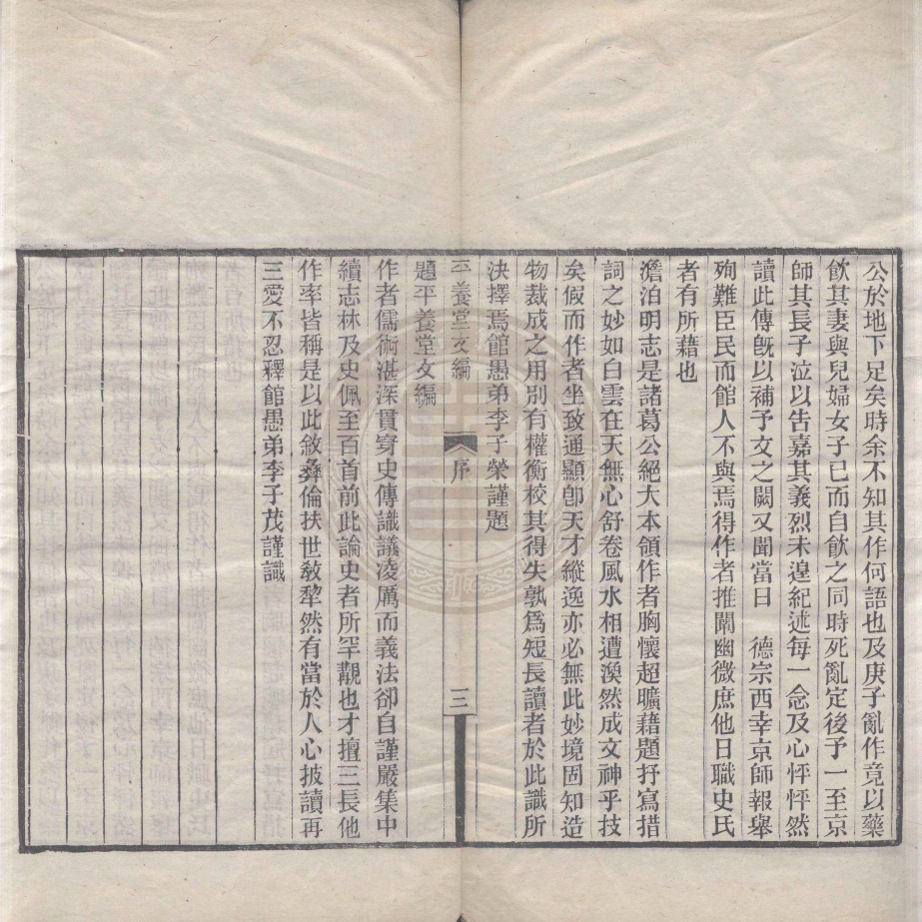 公於地下足矣時余不知其作何語也及庚子亂作竟以藥
飲其妻與兒婦女子已而自飲之同時死亂定後予一至京
師其長子泣以告嘉其義烈未遑紀述每一念及心怦怦然
讀此傳旣以補予文之闕又聞當日　德宗西幸京師報舉
殉難臣民而館人不與焉得作者推闡幽微庶他日職史氏
者有所藉也
澹泊明志是諸葛公絕大本領作者胸懷超曠藉題抒寫措
詞之妙如白雲在天無心舒卷風水相遭渙然成文神乎技
矣假而作者坐致通顯卽天才縱逸亦必無此妙境固知造
物裁成之用別有權衡校其得失孰爲短長讀者於此識所
決擇焉館愚弟李子榮謹題
平養堂文編　序　三
題平養堂文編
作者儒術湛深貫穿史傳識議凌厲而義法卻自謹嚴集中
續志林及史佩至百首前此論史者所罕觀也才擅三長他
作率皆稱是以此敘彝倫扶世敎犂然有當於人心披讀再
三愛不忍釋館愚弟李子茂謹識